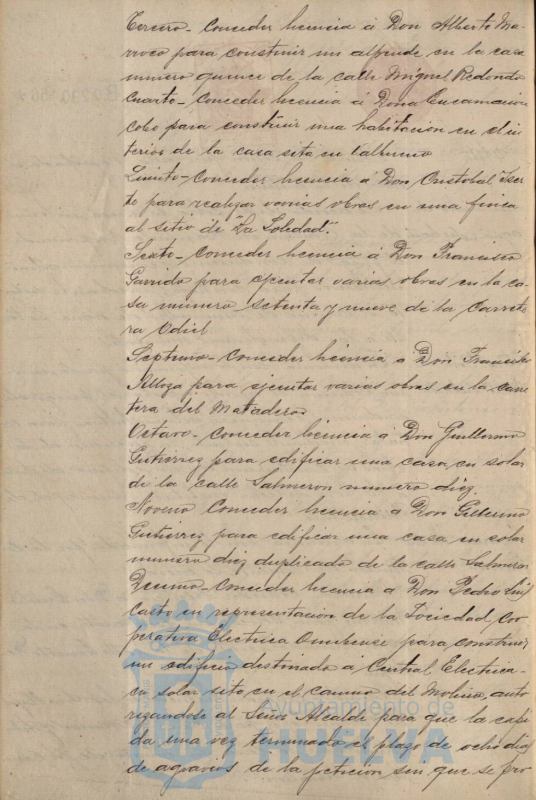 Tercero - Conceder licencia á Don Alberto Ma-
rroco para construir un alpende en la casa
numero quince de la calle Miguel Redondo
Cuarto - Conceder licencia á Doña Encarnacion
Cobo para construir una habitacion en el in
terior de la casa sita en
Quinto - Conceder licencia á Don Cristobal
para realizar varias obras en una finca
al sitio de "La Soledad".
Sexto - Conceder licencia á Don Francisco
Garrido para ejecutar varias obras en la ca-
sa numero setenta y nueve de la Carrete
ra Odiel
Septimo - Conceder licencia a Don Francisco
para ejecutar varias obras en la Carre
tera del Matadero
Octavo - Conceder licencia á Don Guillermo
Gutierrez para edificar una casa en solar
de la calle Salmeron numero diez.
Noveno Conceder licencia a Don Gillermo
Gutierrez para edificar una casa en solar
numero diez duplicado de la calle Salmeron
Decimo - Conceder licencia a Don Pedro Luis
Casto en representacion de la Sociedad Coo
perativa Electrica Onubense para construir
un edificio destinado a Central Electrica
en solar sito en el camino del Molino, auto
rizandole al Señor Alcalde para que la expi
da una vez terminado el plazo de ocho dias
de agravios de la peticion sin que se pro
Ayuntamiento de
HUELVA